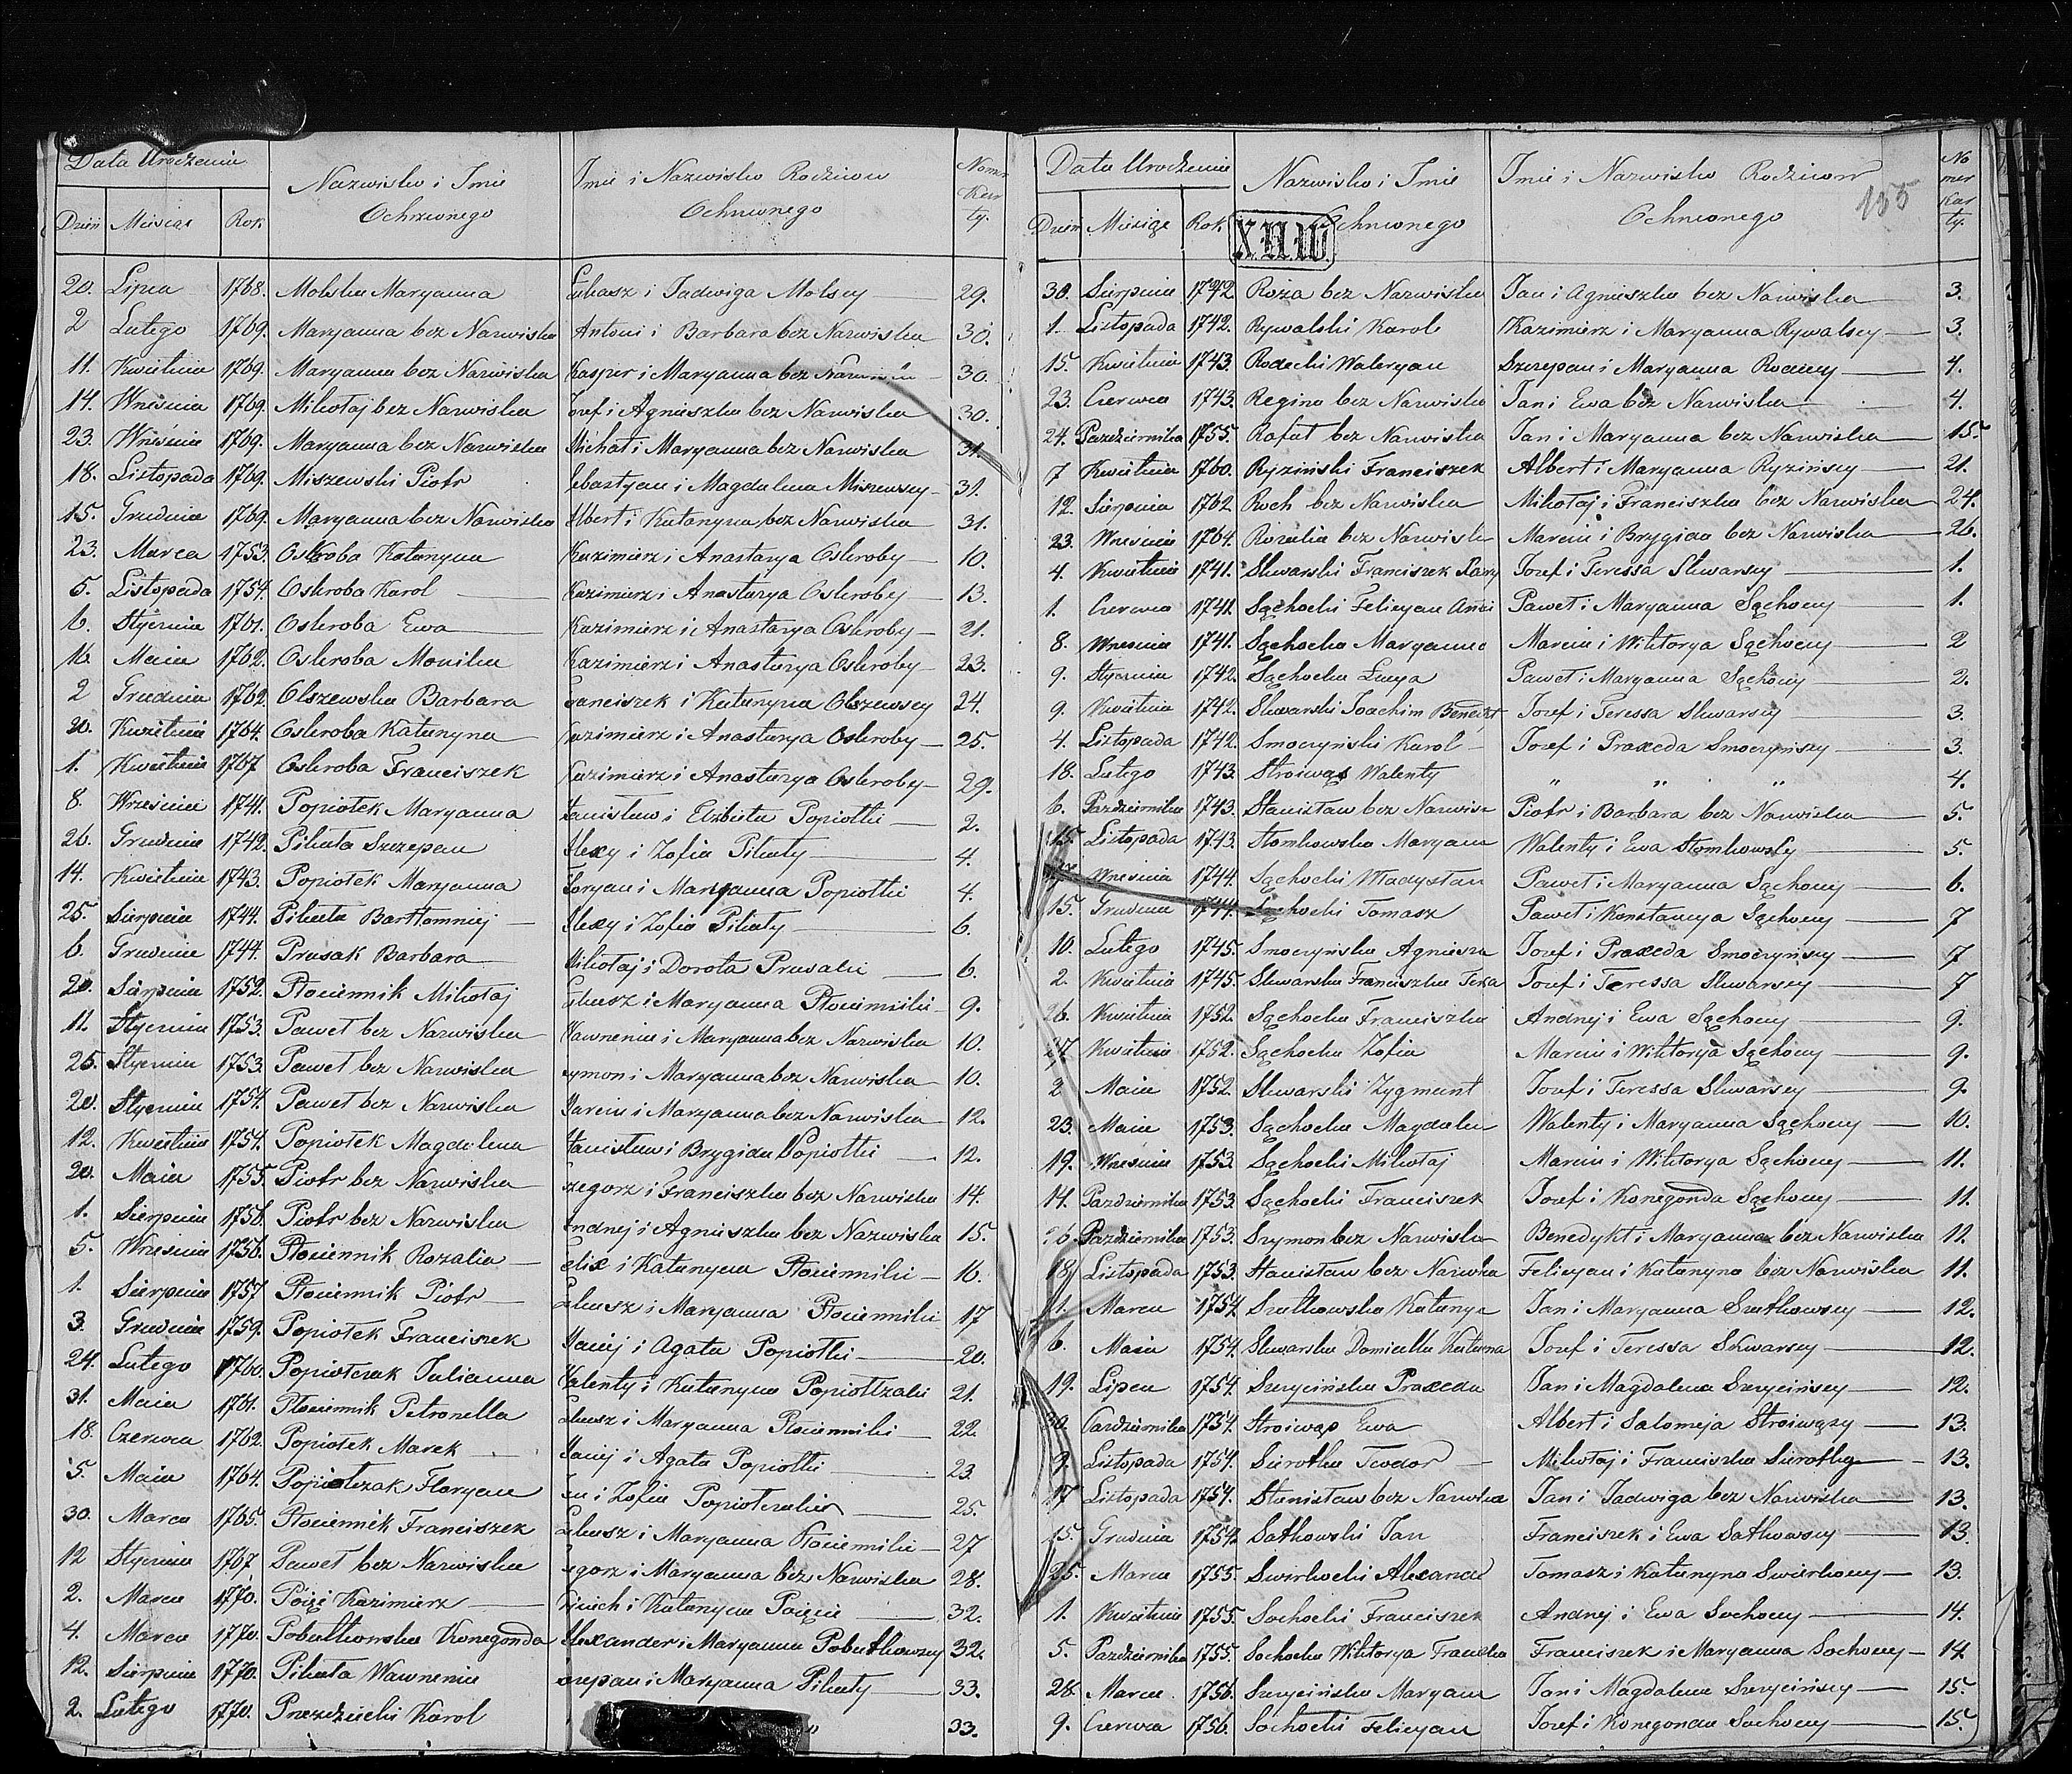 Data Urodzenia
Nazwisko i Imie
Ochrzconego
Imie i Nazwisko Rodziców
Ochrzconego
Numer
Kar
ty.
Dzień Miesiąc Rok
20. Lipca 1768. Molska Maryanna Łukasz i Jadwiga Molscy 29.
2 Lutego 1769. Maryanna bez Nazwiska Antoni i Barbara bez Nazwiska 30.
11. Kwietnia 1769. Maryanna bez Nazwiska Kasper i Maryanna bez Nazwiska 30.
14. Września 1769. Mikołaj bez Nazwiska Józef i Agnieszka bez Nazwiska 30.
23. Września 1769. Maryanna bez Nazwiska Michał i Maryanna bez Nazwiska 31.
18. Listopada 1769. Miszewski Piotr Sebastyan i Magdalena Miszewscy 31.
15. Grudnia 1769. Maryanna bez Nazwiska Albert i Katarzyna bez Nazwiska 31.
23. Marca 1753. Oskroba Katarzyna Kazimierz i Anastazya Oskroby 10.
5. Listopada 1754. Oskroba Karol Kazimierz i Anastazya Oskroby 13.
6. Stycznia 1761. Oskroba Ewa Kazimierz i Anastazya Oskroby 21.
16 Maia 1762. Oskroba Monika Kazimierz i Anastazya Oskroby 23.
2 Grudnia 1762. Olszewska Barbara Franciszek i Katarzyna Olszewscy 24.
20. Kwietnia 1764. Oskroba Katarzyna Kazimierz i Anastazya Oskroby 25.
1. Kwietnia 1767 Oskroba Franciszek Kazimierz i Anastazya Oskroby 29.
8. Września 1741. Popiołek Maryanna Stanisław i Elżbieta Popiołki 2.
26. Grudnia 1742. Pikuta Szczepan Alexy i Zofia Pikuty 4.
14. Kwietnia 1743. Popiołek Maryanna Floryan i Maryanna Popiołki 4.
25. Sierpnia 1744. Pikuta Bartłomniej Alexy i Zofia Pikuty 6.
6. Grudnia 1744. Prusak Barbara Mikołaj i Dorota Prusaki 6.
20. Sierpnia 1752. Płóciennik Mikołaj Łukasz i Maryanna Płócienniki 9.
11. Stycznia 1753. Paweł bez Nazwiska Wawrzeniec i Maryanna bez Nazwiska 10.
25. Stycznia 1753. Paweł bez Nazwiska Szymon i Maryanna bez Nazwiska 10.
20. Stycznia 1754. Paweł bez Nazwiska Marcin i Maryanna bez Nazwiska 12.
12. Kwietnia 1754. Popiołek Magdalena Stanisław i Brygida Popiołki 12.
20. Maia 1755. Piotr bez Nazwiska Grzegorz i Franciszka bez Nazwiska 14.
1. Sierpnia 1756. Piotr bez Nazwiska Andrzej i Agnieszka bez Nazwiska 15.
5. Września 1756. Płóciennik Rozalia Felix i Katarzyna Płócienniki 16.
1. Sierpnia 1757 Płóciennik Piotr Łukasz i Maryanna Płócienniki 17
3. Grudnia 1759. Popiołek Franciszek Maciej i Agata Popiołki 20.
24. Lutego 1760. Popiołczak Julianna Walenty i Katarzyna Popiołczaki 21.
31. Maia 1761. Płóciennik Petronella Łukasz i Maryanna Płócienniki 22.
18. Czerwca 1762. Popiołek Marek Maciej i Agata Popiołki 23.
5. Maia 1764. Popiołczak Floryan Jan i Zofia Popiołczaki 25.
30. Marca 1765. Płóciennik Franciszek Łukasz i Maryanna Płócienniki 27
12 Stycznia 1767. Paweł bez Nazwiska Grzegorz i Maryanna bez Nazwiska 28.
2. Marca 1770. Pózię Kazimierz Katarzyna 32.
4. Marca 1770. Pobutkowska Konegonda Alexander i Maryanna Pobutkowscy 32.
12. Sierpnia 1770. Pikuta Wawrzeniec Szczepan i Maryanna Pikuty 33.
2. Lutego 1770. Przezdziecki Karol " 33.
Data Urodzenia
Nazwisko i Imie
Ochrzconego
Imie i Nazwisko Rodziców
Ochrzconego
155
Nu
mer
Kar
ty.
Dzień Miesiąc Rok
X.II.III.
30. Sierpnia 1742. Róża bez Nazwiska Jan i Agnieszka bez Nazwiska 3.
1. Listopada 1742. Rywalski Karol Kazimierz i Maryanna Rywalscy 3.
15. Kwietnia 1743. Rodecki Waleryan Szczepan i Maryanna Rodeccy 4.
23. Czerwca 1743. Regina bez Nazwiska Jan i Ewa bez Nazwiska 4.
24. Pazdziernika 1755. Rafał bez Nazwiska Jan i Maryanna bez Nazwiska 15.
7 Kwietnia 1760. Ryziński Franciszek Albert i Maryanna Ryzińscy 21.
12. Sierpnia 1762 Roch bez Nazwiska Mikołaj i Franciszka bez Nazwiska 24.
23. Września 1764. Rozalia bez Nazwiska Marcin i Brygida bez Nazwiska 26.
4. Kwietnia 1741. Skwarski Franciszek Józef i Teressa Skwarscy 1.
1. Czerwca 1741. Sąchocki Felicyan Józef Paweł i Maryanna Sąchoccy 1.
8. Września 1741. Sąchocka Maryanna Marcin i Wiktorya Sąchoccy 2
9. Stycznia 1742. Sąchocka Łucya Paweł i Maryanna Sąchoccy 2.
9. Kwietnia 1742. Skwarski Joachim Benedykt Józef i Teressa Skwarscy 3.
4. Listopada 1742. Smoczyński Karol Józef i Praxeda Smoczyńscy 3.
18. Lutego 1743. Stroiwąs Walenty " " " 4.
6. Pazdziernika 1743. Stanisław bez Nazwisk Piotr i Barbara bez Nazwiska 5.
15. Listopada 1743. Słomkowska Maryan Walenty i Ewa Słomkowscy 5.
Września 1744. Sąchocki Władysław Paweł i Maryanna Sąchoccy 6.
15. Grudnia 1744. Sąchocki Tomasz Paweł i Konstancya Sąchoccy 7
10. Lutego 1745. Smoczyńska Agniesza Józef i Praxeda Smoczyńscy 7
2. Kwietnia 1745. Skwarska Franciszka Teresa Józef i Teressa Skwarscy 7
26. Kwietnia 1752. Sąchocka Franciszka Andrzej i Ewa Sąchoccy 9.
27 Kwietnia 1752. Sąchocka Zofia Marcin i Wiktorya Sąchoccy 9.
2 Maia 1752. Skwarski Zygmunt Józef i Teressa Skwarscy 9.
23. Maia 1753. Sąchocka Magdalen Walenty i Maryanna Sąchoccy 10.
19. Września 1753. Sąchocki Mikołaj Marcin i Wiktorya Sąchoccy 11.
14. Pazdziernika 1753. Sąchocki Franciszek Józef i Konegonda Sąchoccy 11.
26. Pazdziernika 1753. Szymon bez Nazwiska Benedykt i Maryanna bez Nazwiska 11.
18. Listopada 1753. Stanisław bez Nazwiska Felicyan i Katarzyna bez Nazwiska 11.
1. Marca 1754. Szutkowska Katarzyn Jan i Maryanna Szutkowscy 12.
6. Maia 1754. Skwarska Domicella Katarzna Józef i Teressa Skwarscy 12.
19. Lipca 1754. Szczycińska Praxeda Jan i Magdalena Szczycińscy 12.
30. Pazdziernika 1754. Stroiwąs Ewa Albert i Salomeja Stroiwąsy 13.
9. Listopada 1754. Sierotka Teodor Mikołaj i Franciszka Sierotky 13.
17 Listopada 1754. Stanisław bez Nazwiska Jan i Jadwiga bez Nazwiska 13.
15. Grudnia 1754. Satkowski Jan Franciszek i Ewa Satkowscy 13.
25. Marca 1755. Swierkocki Alexand Tomasz i Katarzyna Swierkoccy 13.
1. Kwietnia 1755. Sochocki Franciszek Andrzej i Ewa Sochoccy 14.
5. Pazdziernika 1755. Sochocka Wiktorya Franciszka Franciszek i Maryanna Sochoccy 14
28. Marca 1756. Szczycińska Maryan Jan i Magdalena Szczycińscy 15.
9. Czerwca 1756. Sochocki Felicyan Józef i Konegonda Sochoccy 15.